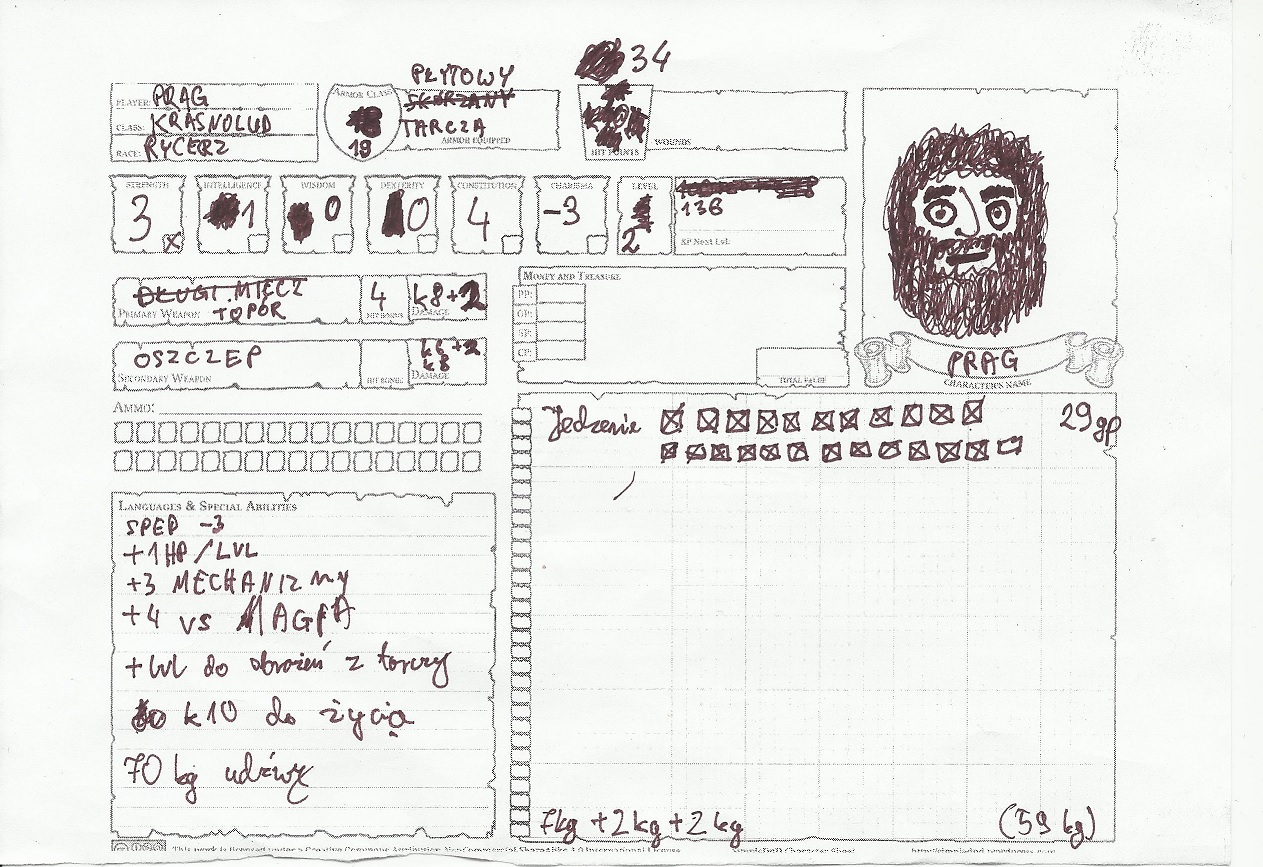 34
PŁYTOWY
PLAYER: PRAG
ARMOR CLASS
SKÓRZANY
CLASS: KRASNOLUD
TARCZA
RACE: RYCERZ
19
ARMOR EQUIPPED
HIT POINTS
WOUNDS
STRENGTH INTELLIGENCE WISDOM DEXTERITY CONSTITUTION CHARISMA LEVEL
3 1 0 0 4 -3 2
136
XP NEXT LVL:
DŁUGI MIECZ
TOPÓR
4
k8+2
PRIMARY WEAPON
HIT BONUS
DAMAGE
MONEY AND TREASURE
PP:
GP:
SP:
CP:
TOTAL VALUE
OSZCZEP
k6+2
k8
SECONDARY WEAPON
HIT BONUS
DAMAGE
PRAG
CHARACTER'S NAME
AMMO:
Jedzenie
29 gp
LANGUAGES & SPECIAL ABILITIES
SPEED -3
+1HP/LVL
+3 MECHANIZMY
+4 VS MAGIA
+lvl do obrażeń z tarczy
k10 do życia
70 kg udźwigu
7kg +2kg +2kg
(59 kg)